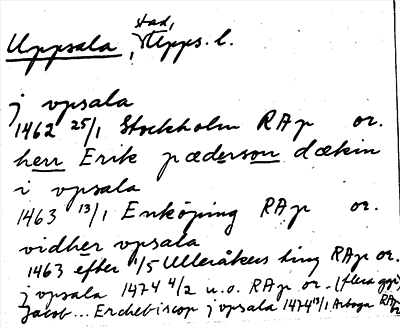 Uppsala, stad, Upps. l.
j vpsala
1462 25/1 Stockholm RAp or.
herr Erik pæderson dækin
i vpsala
1463 13/1 Enköping RAp or.
vidher vpsala
1463 efter 1/5 Ulleråkers ting RAp or.
j vpsala 1474 4/2 u.o. RAp or. (flera ggr)
Jacob... Erchebiscop j vpsala 1474 13/1 Arboga RAp or.